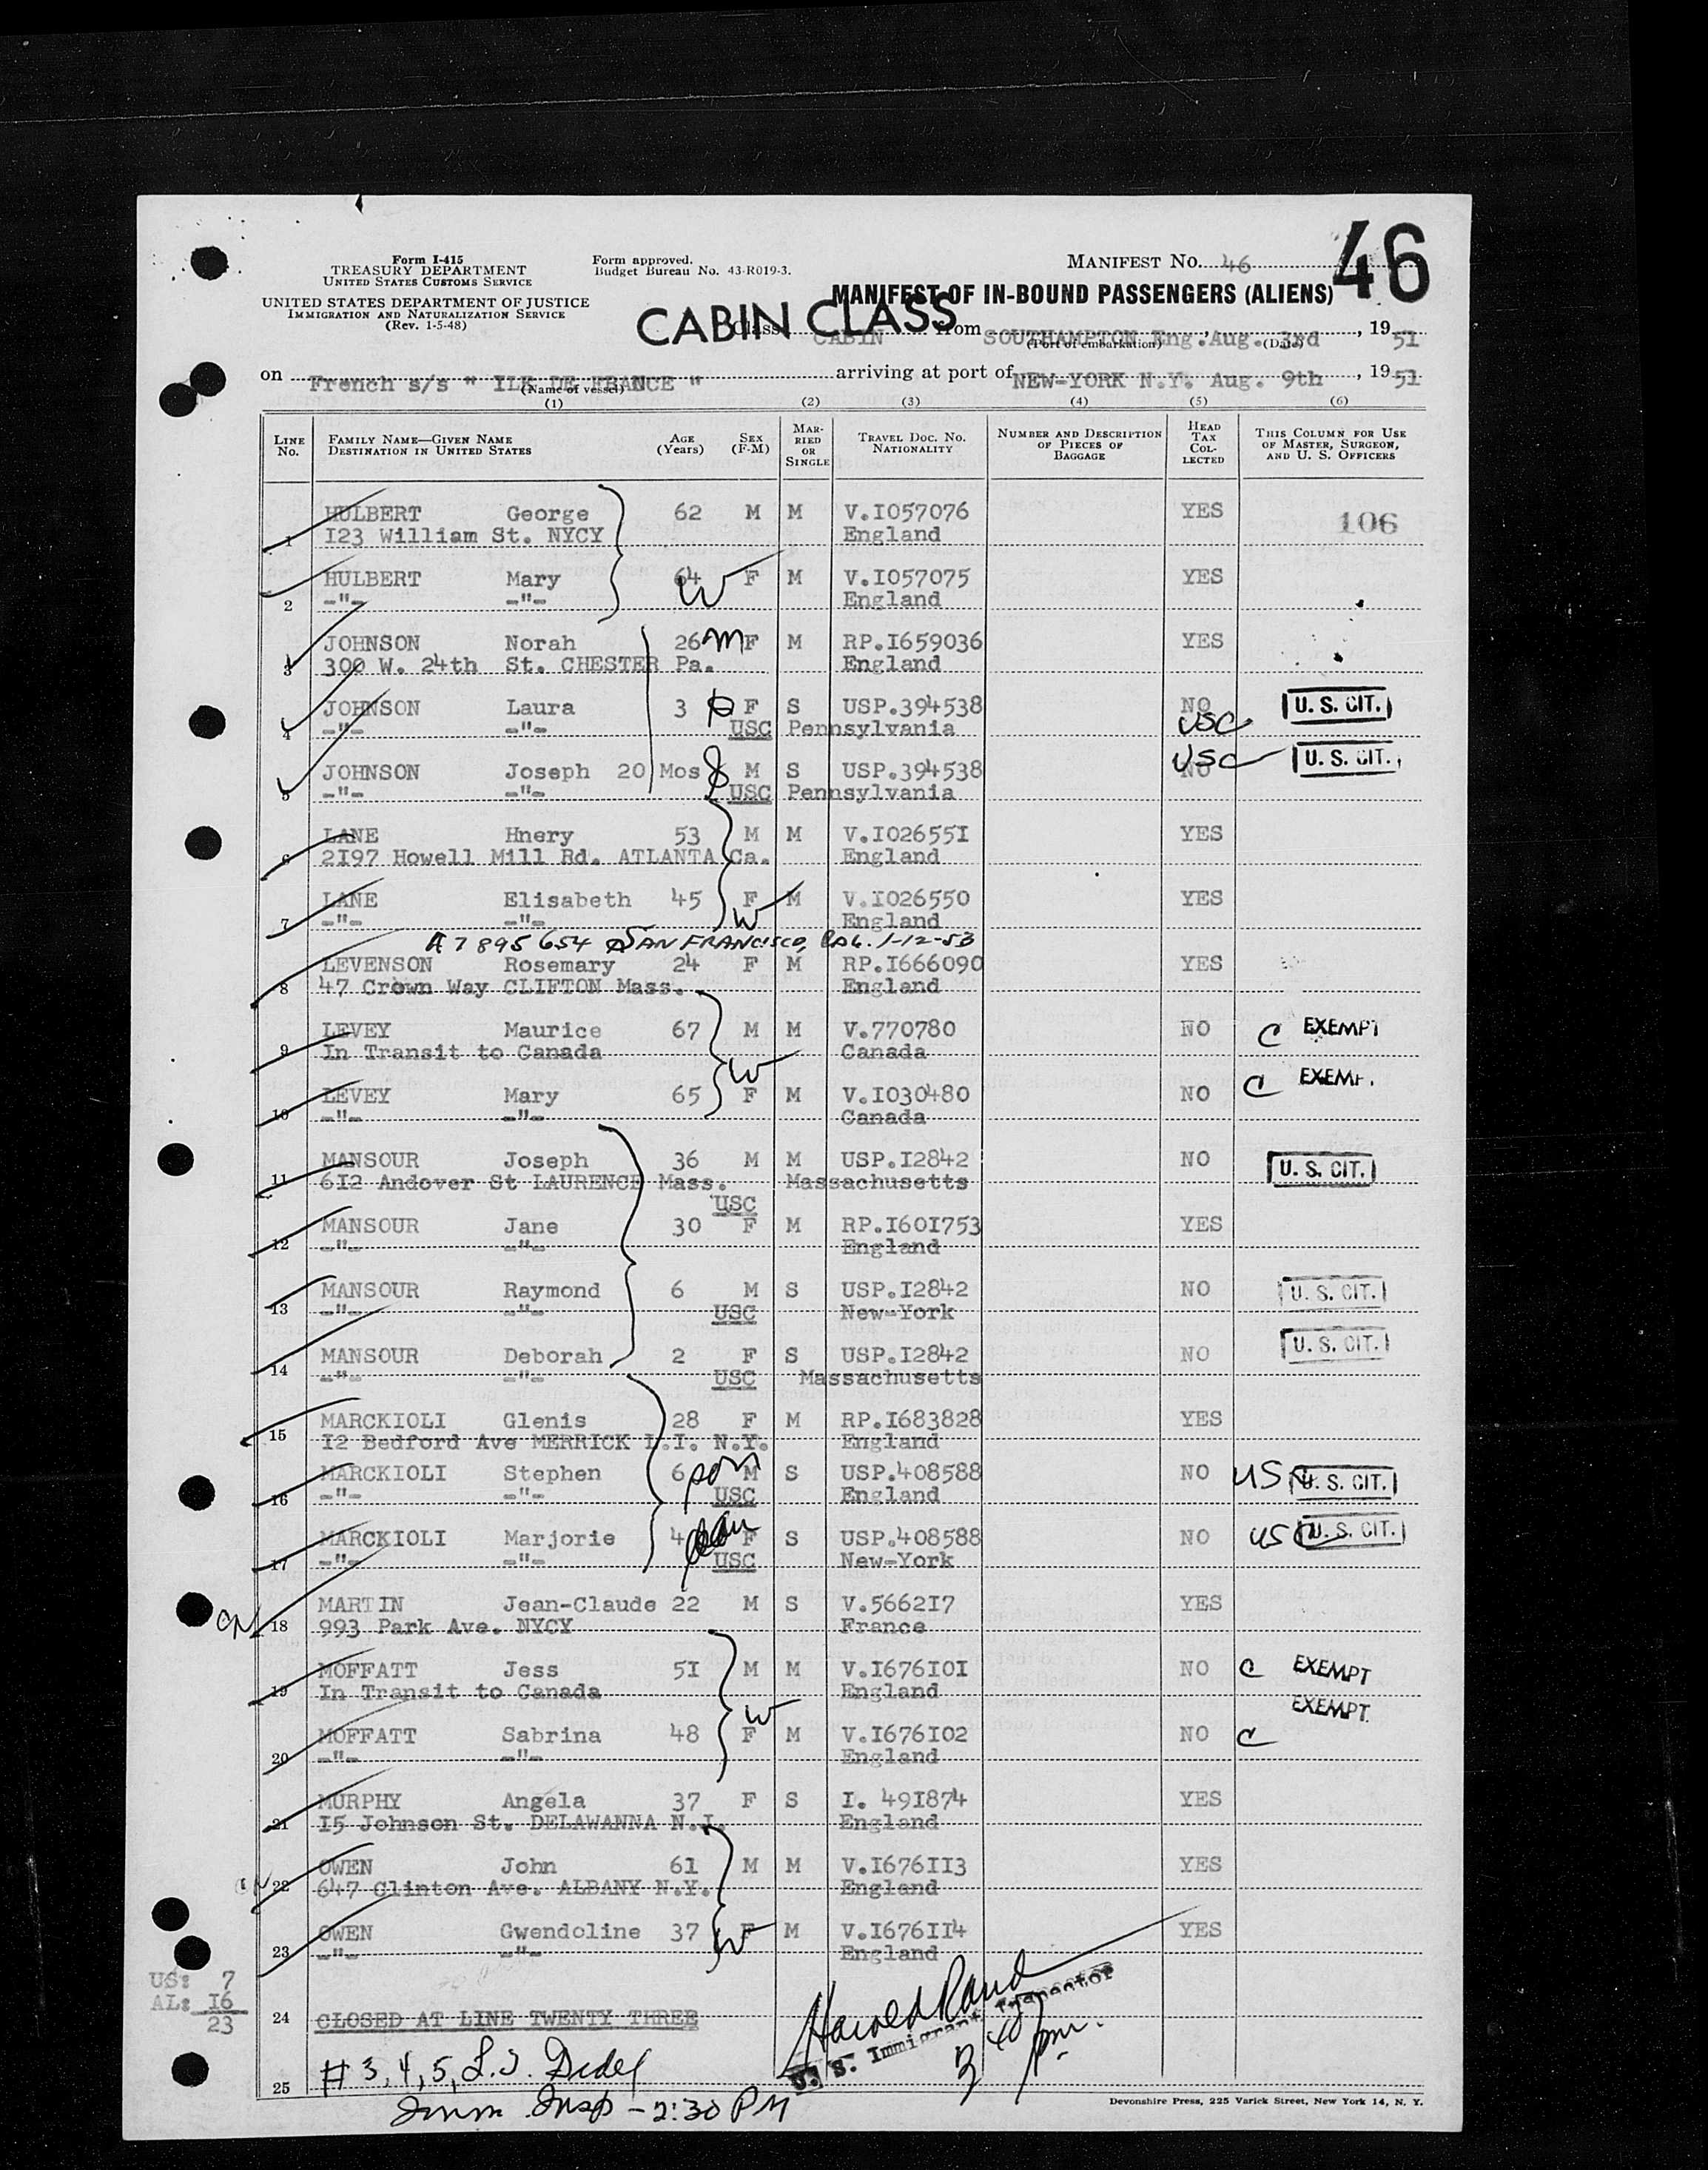 46
Form I-415
TREASURY DEPARTMENT
UNITED STATES CUSTOMS SERVICE
UNITED STATES DEPARTMENT OF JUSTICE
IMMIGRATION AND NATURALIZATION SERVICE
(Rev. 1-5-48)
Form approved.
Budget Bureau No. 43-R019-3.
MANIFEST NO. 46
MANIFEST OF IN-BOUND PASSENGERS (ALIENS)
CABIN CLASS
Class CABIN from SOUTHAMPTON Eng. Aug. 3rd, 1951
(Port of embarkation) (Date)
on French s/s " ILE DE FRANCE " arriving at port of NEW-YORK N.Y. Aug. 9th, 1951
(Name of vessel)
(1) (2) (3) (4) (5) (6)
LINE No. FAMILY NAME—GIVEN NAME DESTINATION IN UNITED STATES AGE (Years) SEX (F-M) MARRIED OR SINGLE TRAVEL DOC. NO. NATIONALITY NUMBER AND DESCRIPTION OF PIECES OF BAGGAGE HEAD TAX COLLECTED THIS COLUMN FOR USE OF MASTER, SURGEON, AND U. S. OFFICERS
HULBERT George 62 M M V.I057076 YES 106
1 I23 William St. NYCY England
HULBERT Mary 64 W F M V.I057075 YES
2 -"- -"- England
JOHNSON Norah 26 M F M RP.I659036 YES
3 300 W. 24th St. CHESTER Pa. England
JOHNSON Laura 3 F S USP.394538 NO U. S. CIT.
4 -"- -"- USC Pennsylvania USC
JOHNSON Joseph 20 Mos M S USP.394538 NO USC U. S. CIT.
5 -"- -"- USC Pennsylvania
LANE Hnery 53 M M V.I02655I YES
6 2I97 Howell Mill Rd. ATLANTA Ca. England
LANE Elisabeth 45 F M V.I026550 YES
7 -"- -"- W England
A7 895 654 SAN FRANCISCO, CAL. 1-12-53
LEVENSON Rosemary 24 F M RP.I666090 YES
8 47 Crown Way CLIFTON Mass. England
LEVEY Maurice 67 M M V.770780 NO C EXEMPT
9 In Transit to Canada Canada
W
LEVEY Mary 65 F M V.I030480 NO C EXEMP.
10 -"- -"- Canada
MANSOUR Joseph 36 M M USP.I2842 NO U. S. CIT.
11 6I2 Andover St LAURENCE Mass. Massachusetts
USC
MANSOUR Jane 30 F M RP.I60I753 YES
12 -"- -"- England
MANSOUR Raymond 6 M S USP.I2842 NO U. S. CIT.
13 -"- -"- USC New-York
MANSOUR Deborah 2 F S USP.I2842 NO U. S. CIT.
14 -"- -"- USC Massachusetts
MARCKIOLI Glenis 28 F M RP.I683828 YES
15 I2 Bedford Ave MERRICK L.I. N.Y. England
MARCKIOLI Stephen 6 son M S USP.408588 NO US U. S. CIT.
16 -"- -"- USC England
MARCKIOLI Marjorie 4 F S USP.408588 NO USC U. S. CIT.
17 -"- -"- USC New-York
MARTIN Jean-Claude 22 M S V.5662I7 YES
18 993 Park Ave. NYCY France
MOFFATT Jess 5I M M V.I676I0I NO C EXEMPT
19 In Transit to Canada England
EXEMPT
MOFFATT Sabrina 48 W F M V.I676I02 NO C
20 -"- -"- England
MURPHY Angela 37 F S I. 49I874 YES
21 I5 Johnson St. DELAWANNA N.J. England
OWEN John 61 M M V.I676II3 YES
22 647 Clinton Ave. ALBANY N.Y. England
OWEN Gwendoline 37 F M V.I676II4 YES
23 -"- -"- W England
US: 7
AL: I6
23
24 CLOSED AT LINE TWENTY THREE
Harold Rand
U. S. Immigrant Inspector
3 40 pm.
25 # 3, 4, 5, L.J. Dedel
Imm. Insp - 2:30 PM
Devonshire Press, 225 Varick Street, New York 14, N. Y.